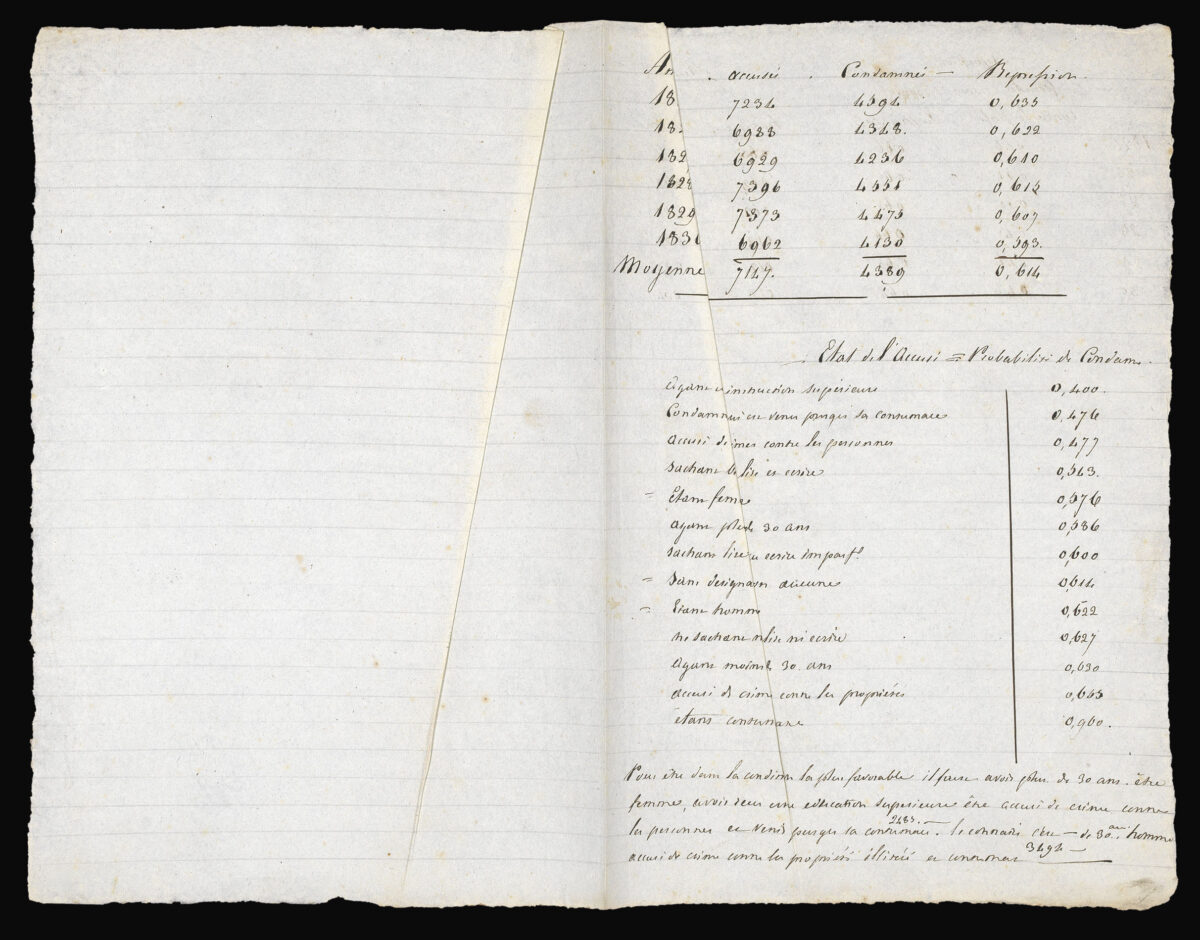 An accusés . Condamnés — Repression.
18 7234 4594 0,635
18 6988 4348. 0,622
182 6929 4236 0,610
1828 7396 4551 0,615
1829 7373 4475 0,607
1830 6962 4130 0,593.
Moyenne 7147. 4389 0,614
Etat de l'accusé = Probabilité de Condam.
instruction supérieure 0,400.
Condamnés venu purger sa contumace 0,476
accusé crimes contre les personnes 0,477
sachant lire et ecrire 0,543.
= Etant feme 0,576
ayant 30 ans 0,586
sachant lire ecrire imparft 0,600
= sans designaon aucune 0,614
= Etant homme 0,622
ne sachant lire ni ecrire 0,627
ayant moins 30 ans 0,630
accusé de crime contre les propriétés 0,655
étant contumace 0,960.
Pour être dans la condition la plus favorable il faut avoir plus de 30 ans. être
femme, avoir une education superieure être accusé de crime contre
les personnes et venir purger sa contumace. 2483. — le contraire — de 30 ans. homme
accusé de crime contre les propriétés illitéré et contumax 3494 —